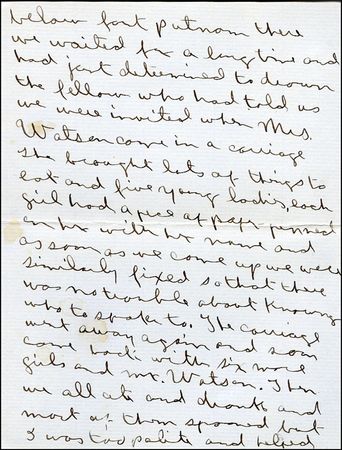 below fort Putnam there
we waited for a long time and
had just determined to drown
the fellow who had told us
we were invited when Mrs.
Watson come in a carriage
she brought lots of things to
eat and five young ladies, each
girl had a piece of paper pinned
on her with her name and
as soon as we come up we were
similarly fixed so that there
was no trouble about knowing
who to speak to. The carriage
went away again and soon
came back with six more
girls and Mr. Watson. Then
we all ate and drank and
most of them spooned but
I was too polite and helped